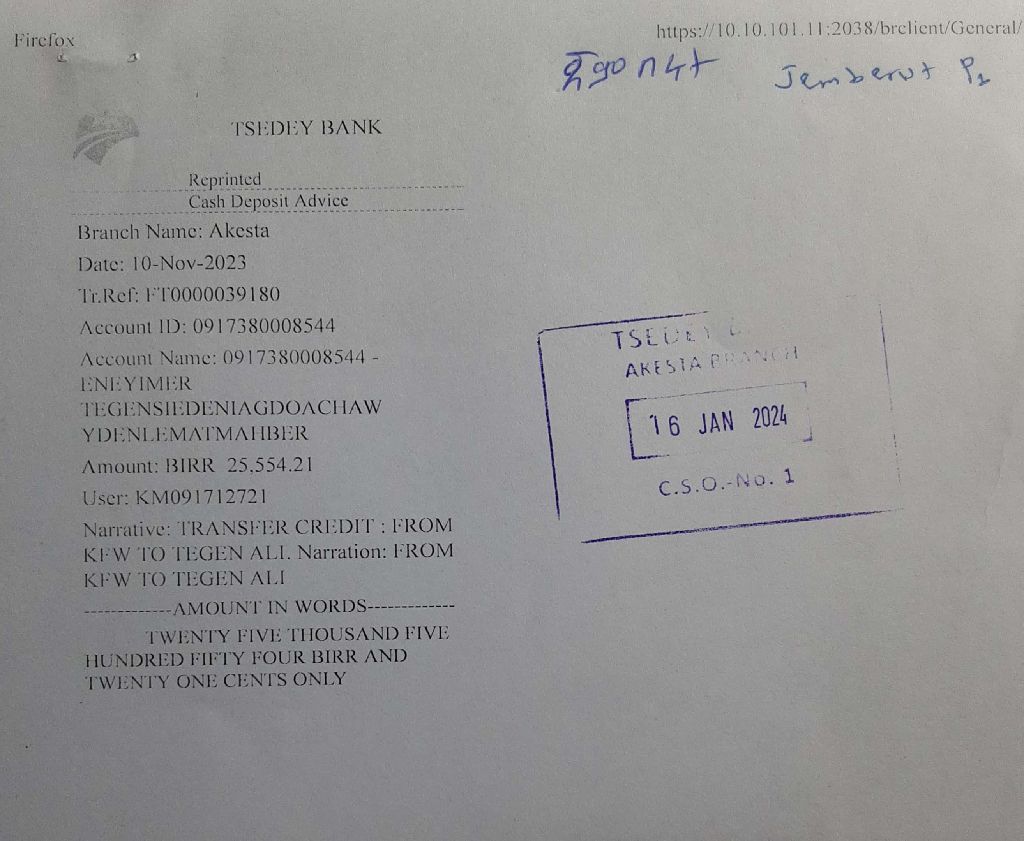 Firefox
https://10.10.101.11:2038/brclient/General/
Jemberut P1
TSEDEY BANK
Reprinted
Cash Deposit Advice
Branch Name: Akesta
Date: 10-Nov-2023
Tr.Ref: FT0000039180
Account ID: 0917380008544
Account Name: 0917380008544 -
ENEYIMER
TEGENSIEDENIAGDOACHAW
YDENLEMATMAHBER
Amount: BIRR 25,554.21
User: KM091712721
Narrative: TRANSFER CREDIT : FROM
KFW TO TEGEN ALI. Narration: FROM
KFW TO TEGEN ALI
-------------AMOUNT IN WORDS-------------
TWENTY FIVE THOUSAND FIVE
HUNDRED FIFTY FOUR BIRR AND
TWENTY ONE CENTS ONLY
TSEDEY
AKESTA BRANCH
16 JAN 2024
C.S.O.-No. 1